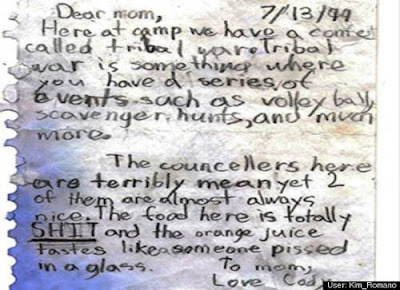 Dear mom, 7/13/99
Here at camp we have a come
called tribal war. Tribal
war is something where
you have a series of
events such as volley ball,
scavenger hunts, and much
more.
The councellers here
are terribly mean yet 2
of them are almost always
nice. The food here is totally
SHIT and the orange juice
tastes like someone pissed
in a glass. To mom,
Love Cody
User: Kim_Romano